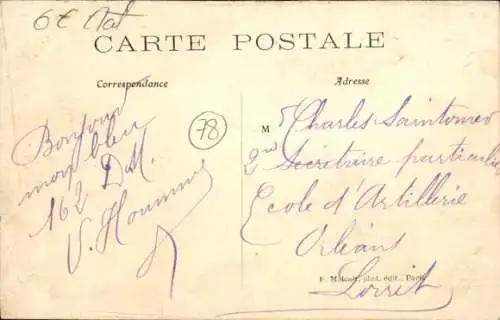 6€ Nat
CARTE POSTALE
Correspondance
Adresse
Bonjour
mon bleu
162 DM.
V. Houmm
78
M r Charles Saintomer
2nd Secrétaire particulier
Ecole d'Artillerie
Orléans
Loiret
phot. édit., Paris